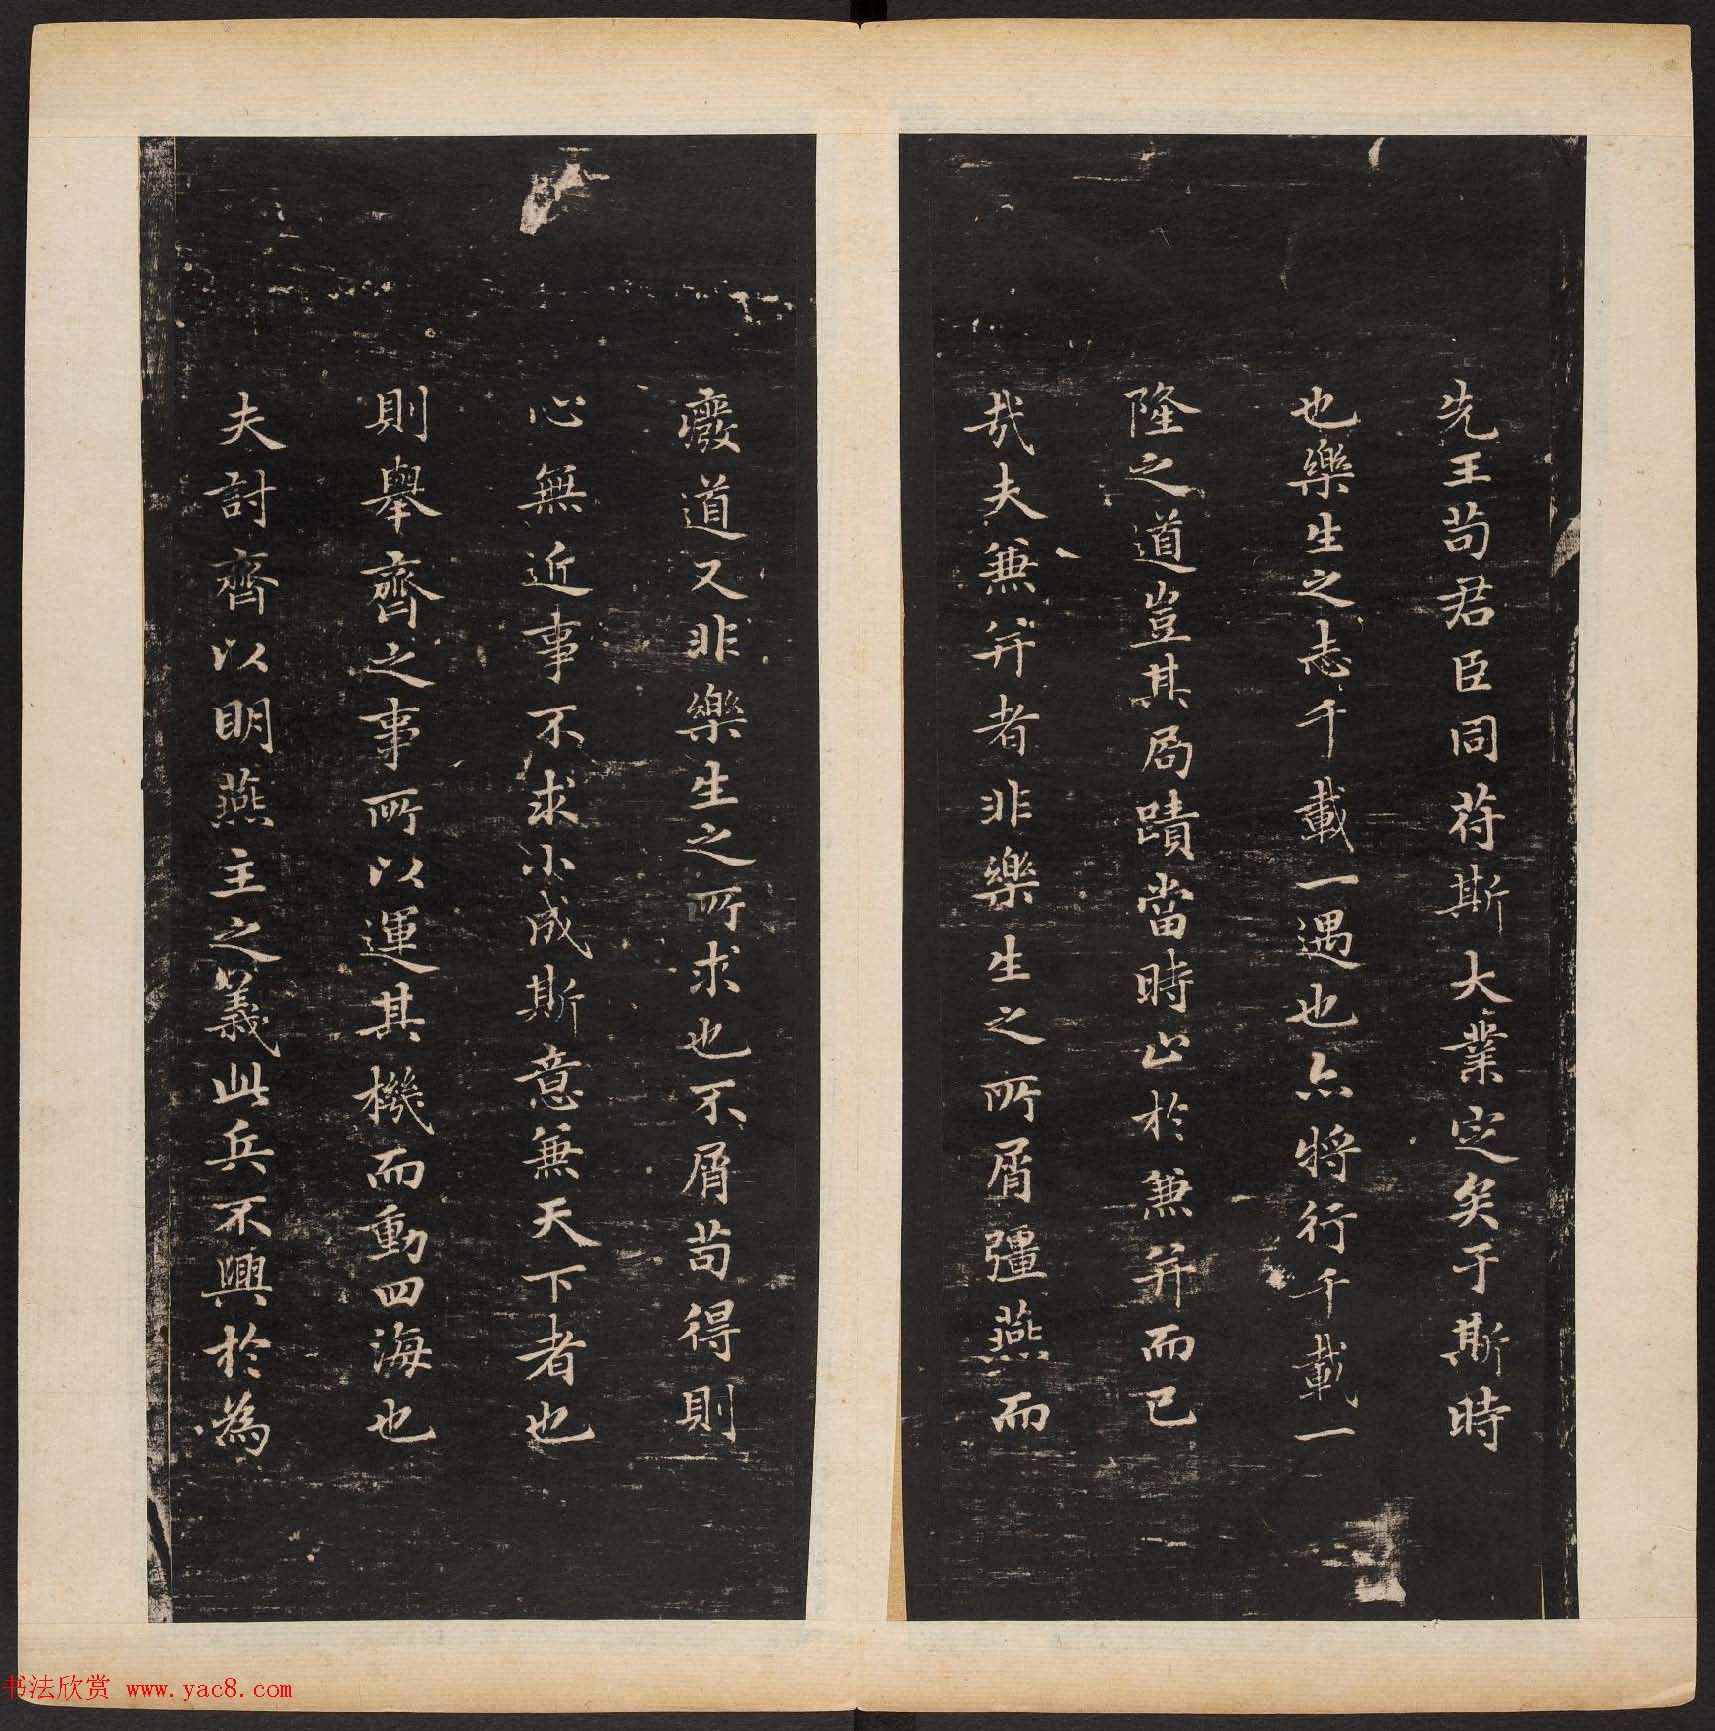 先王苟君臣同苻斯大業定矣于斯時
也樂生之志千載一遇也亦將行千載一
隆之道豈其局蹟當時止於兼并而已
哉夫兼并者非樂生之所屑彊燕而
癈道又非樂生之所求也不屑苟得則
心無近事不求小成斯意兼天下者也
則舉齊之事所以運其機而動四海也
夫討齊以明燕主之義此兵不興於為
书法欣赏 www.yac8.com